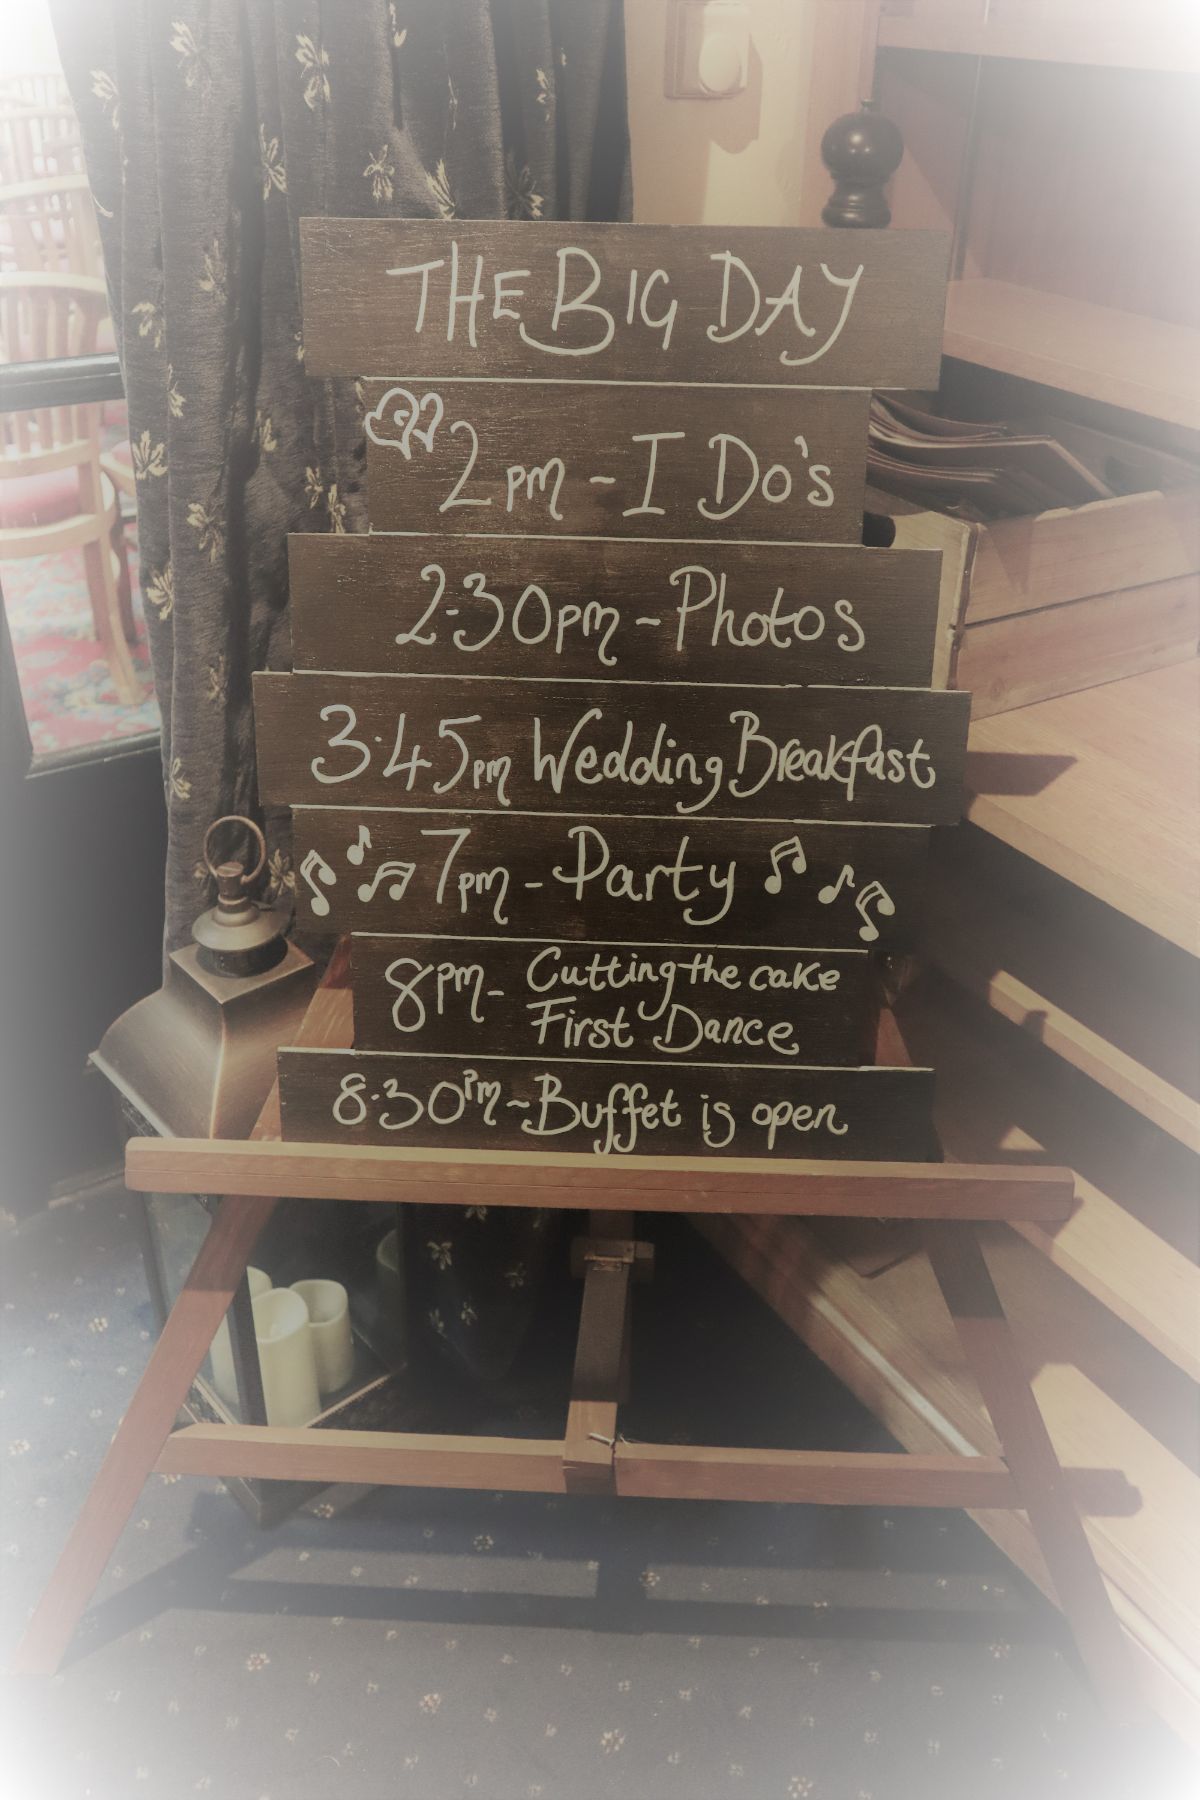 THE BIG DAY
2pm - I Do's
2.30pm ~ Photos
3.45pm Wedding Breakfast
7pm - Party
8pm - Cutting the cake
First Dance
8.30pm ~ Buffet is open